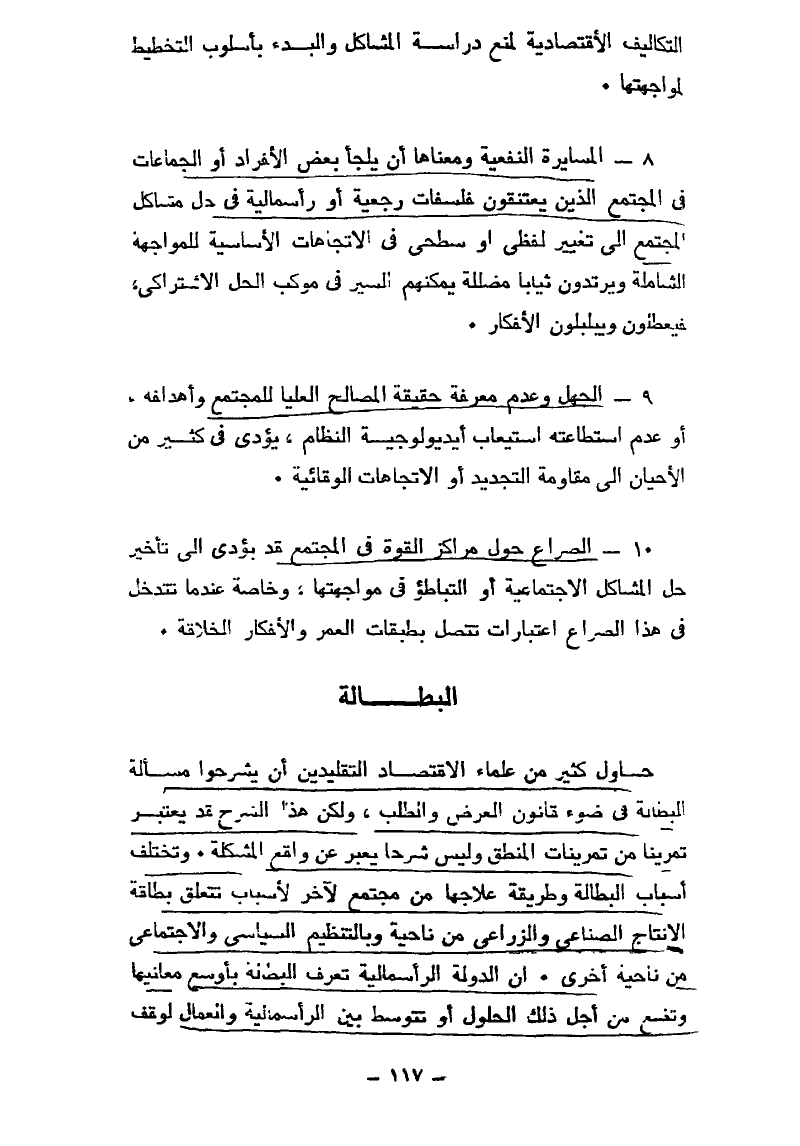 التكاليف الأقتصادية لمنع دراسة المشاكل والبدء بأسلوب التخطيط
لمواجهتها .
٨ – المسايرة النفعية ومعناها أن يلجأ بعض الأفراد أو الجماعات
فى المجتمع الذين يعتنقون فلسفات رجعية أو رأسمالية فى حل مشاكل
المجتمع الى تغيير لفظى او سطحى فى الاتجاهات الأساسية للمواجهة
الشاملة ويرتدون ثيابا مضللة يمكنهم السير فى موكب الحل الاشتراكى،
فيعطلون ويبلبلون الأفكار .
٩ – الجهل وعدم معرفة حقيقة المصالح العليا للمجتمع وأهدافه .
أو عدم استطاعته استيعاب أيديولوجية النظام ، يؤدى فى كثير من
الأحيان الى مقاومة التجديد أو الاتجاهات الوقائية .
١٠ – الصراع حول مراكز القوة فى المجتمع قد يؤدى الى تأخير
حل المشاكل الاجتماعية أو التباطؤ فى مواجهتها ؛ وخاصة عندما تتدخل
فى هذا الصراع اعتبارات تتصل بطبقات العمر والأفكار الخلاقة .
البطالة
حاول كثير من علماء الاقتصاد التقليدين أن يشرحوا مسألة
البطالة فى ضوء قانون العرض والطلب ، ولكن هذا الشرح قد يعتبر
تمرينا من تمرينات المنطق وليس شرحا يعبر عن واقع المشكلة . وتختلف
أسباب البطالة وطريقة علاجها من مجتمع لآخر لأسباب تتعلق بطاقة
الانتاج الصناعى والزراعى من ناحية وبالتنظيم السياسى والاجتماعى
من ناحية أخرى . ان الدولة الرأسمالية تعرف البطالة بأوسع معانيها
وتضع من أجل ذلك الحلول أو تتوسط بين الرأسمالية والعمال لوقف
– ١١٧ –